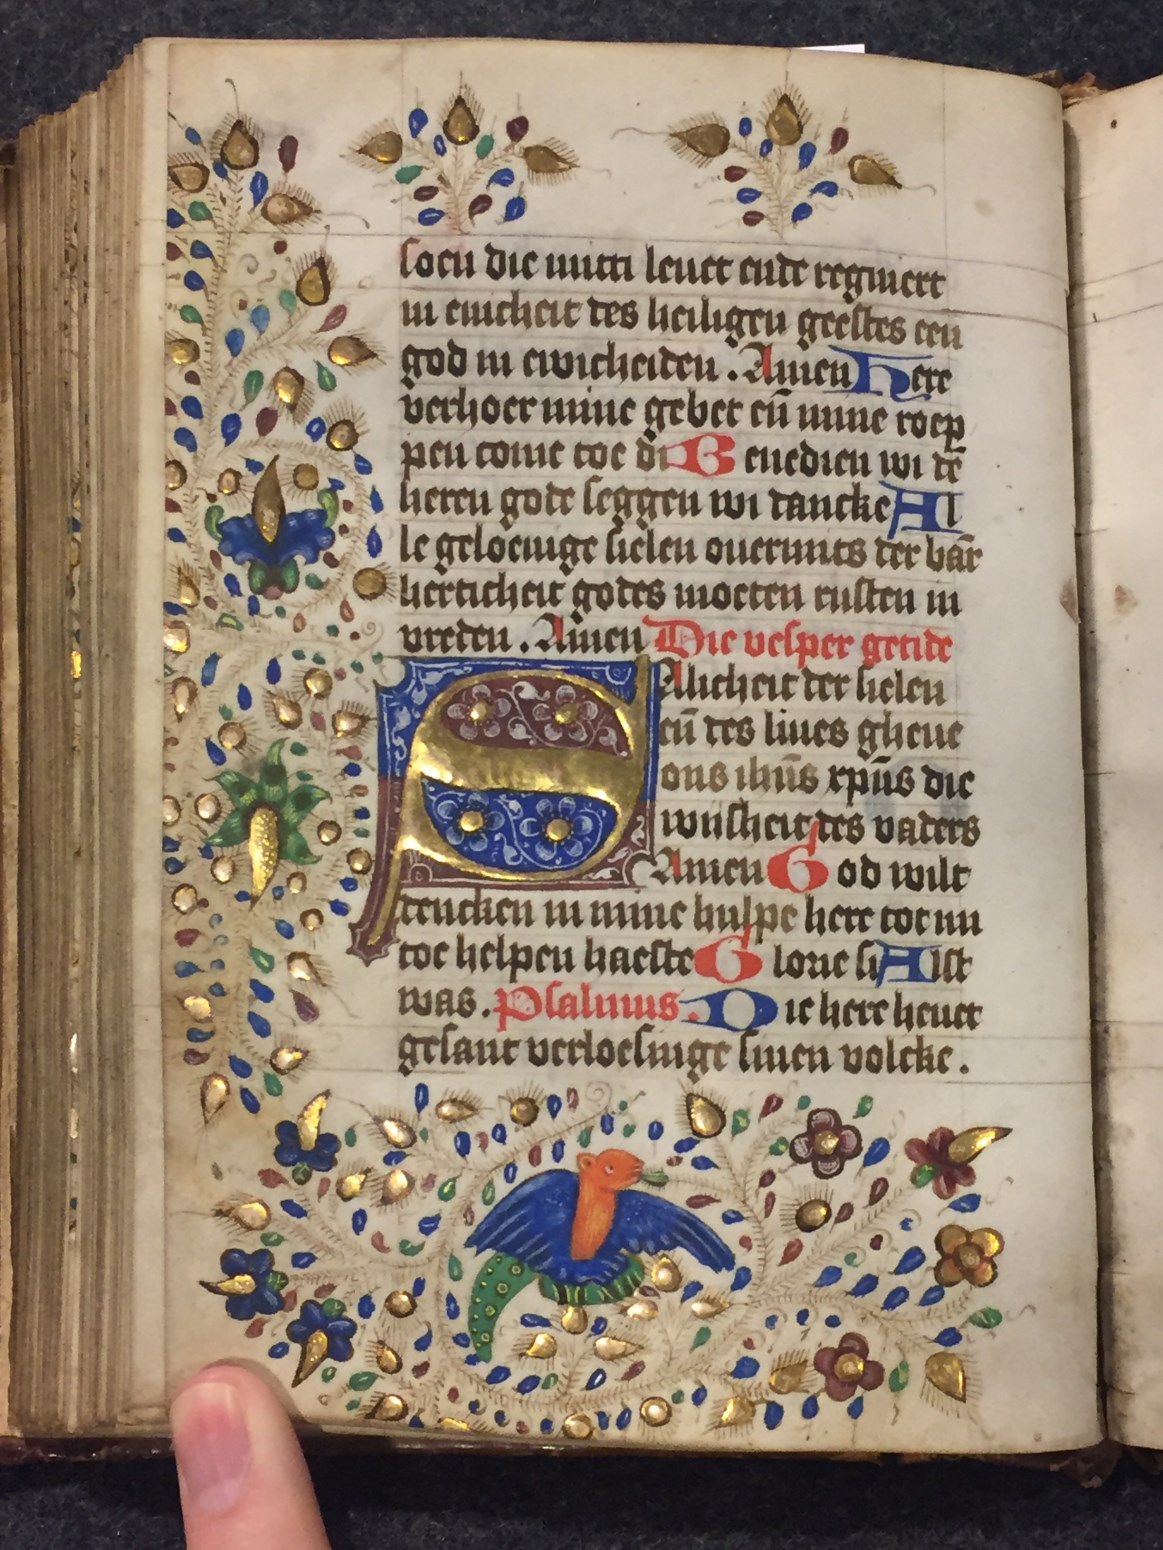 soen die mitti leuet ende regniert
in enicheit des heiligen geestes een
god in ewicheiden. Amen Here
verhoer mine gebet eñ mine roep
pen come toe di Benedien wi dē
heren gode seggen wi dancke Al
le geloeuige sielen ouermits der bar̄
herticheit godes moeten rusten in
vreden. Amen Die vesper getide
SAlicheit der sielen
eñ des liues gheue
ons ihūs xpūs die
wijsheit des vaders
Amen God wilt
dencken in mine hulpe here tot mi
toe helpen haeste Glorie si Alst
was. Psalmus. Die here heuet
gesant verloesinge sinen volcke.